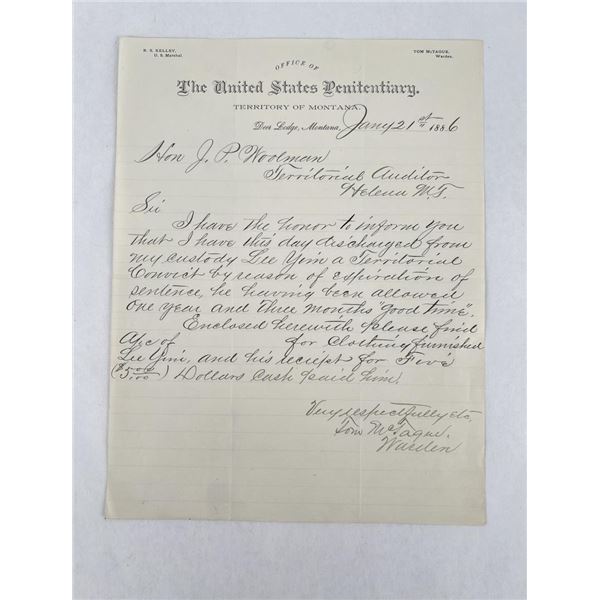 R. S. KELLEY,
U. S. Marshal.
TOM McTAGUE,
Warden.
OFFICE OF
The United States Penitentiary.
TERRITORY OF MONTANA.
Deer Lodge, Montana, Jany 21st 1886
Hon J. P. Woolman
Territorial Auditor
Helena M.T.
Sir
I have the honor to inform you
that I have this day discharged from
my custody Lee Yim a Territorial
Convict by reason of expiration of
sentence, he having been allowed
One year and three months "good time".
Enclosed herewith please find
A/c of for Clothing furnished
Lee Yim, and his reciept for Five
($5.00) Dollars Cash paid him.
Very respectfully etc.
Tom McTague.
Warden